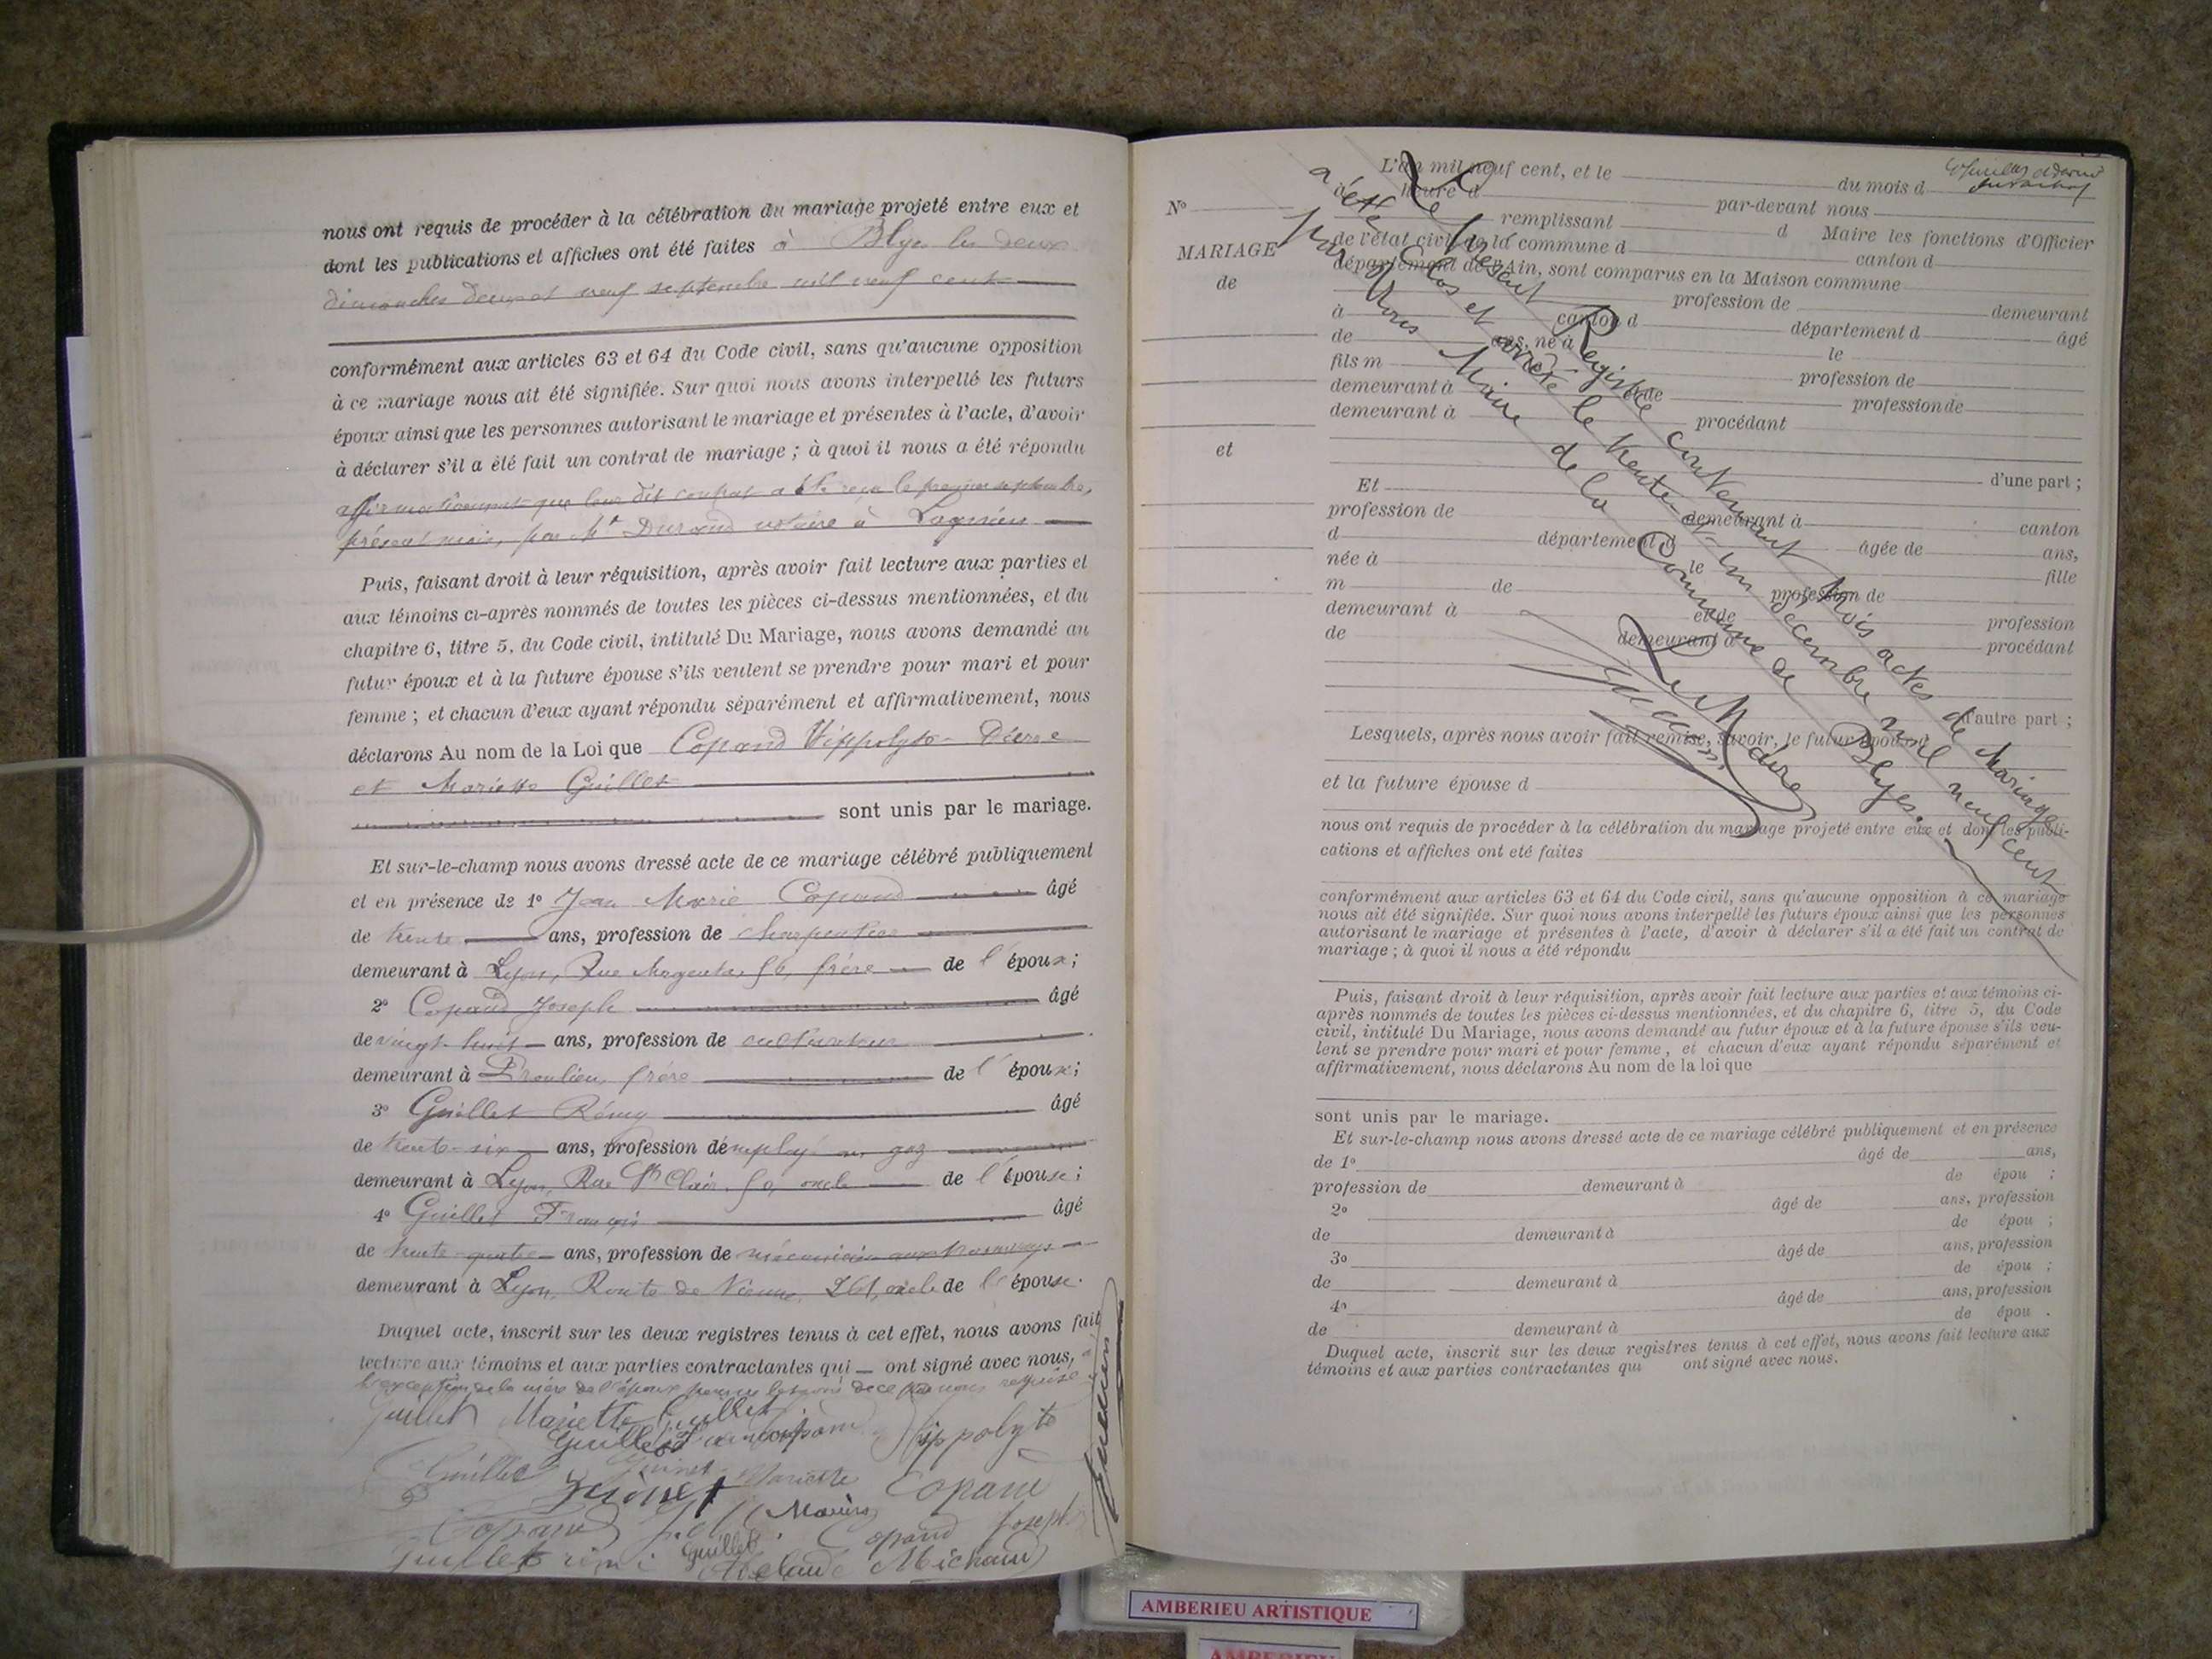 nous ont requis de procéder à la célébration du mariage projeté entre eux et
dont les publications et affiches ont été faites à Blyes les deux
dimanches deux et neuf septembre mil neuf cent
conformément aux articles 63 et 64 du Code civil, sans qu'aucune opposition
à ce mariage nous ait été signifiée. Sur quoi nous avons interpellé les futurs
époux ainsi que les personnes autorisant le mariage et présentes à l'acte, d'avoir
à déclarer s'il a été fait un contrat de mariage ; à quoi il nous a été répondu
affirmativement que leur dit contrat a été reçu le premier septembre,
présent mois, par Me Durand notaire à Lagnieu
Puis, faisant droit à leur réquisition, après avoir fait lecture aux parties et
aux témoins ci-après nommés de toutes les pièces ci-dessus mentionnées, et du
chapitre 6, titre 5, du Code civil, intitulé Du Mariage, nous avons demandé au
futur époux et à la future épouse s'ils veulent se prendre pour mari et pour
femme ; et chacun d'eux ayant répondu séparément et affirmativement, nous
déclarons Au nom de la Loi que Copand Hippolyte
et Mariette Guillet
sont unis par le mariage.
Et sur-le-champ nous avons dressé acte de ce mariage célébré publiquement
et en présence de 1° Jean Marie Copand âgé
de trente ans, profession de charpentier
demeurant à Lyon, Rue Magenta 56, frère de l'époux ;
2° Copand Joseph âgé
de vingt-huit ans, profession de cultivateur
demeurant à Proulieu, frère de l'époux ;
3° Guillet Rémy âgé
de trente-six ans, profession d'employé au gaz
demeurant à Lyon, Rue St Clair, 50, oncle de l'épouse ;
4° Guillet François âgé
de trente-quatre ans, profession de mécanicien aux tramways
demeurant à Lyon, Route de Vienne, 261, oncle de l'épouse.
Duquel acte, inscrit sur les deux registres tenus à cet effet, nous avons fait
lecture aux témoins et aux parties contractantes qui ont signé avec nous, à
l'exception de la mère de l'époux de ce par nous requise
Guillet Mariette Guillet
Guillet Hippolyte
Guillet Guinet Mariette Copand
Copand Marius Copand Joseph
Guillet rémi Guillet Adelaude Michaud
L'an mil neuf cent, et le du mois d
à heure d par-devant nous
N° remplissant d Maire les fonctions d'Officier
MARIAGE de l'état civil de la commune d canton d
département de l'Ain, sont comparus en la Maison commune
de profession de demeurant
à canton d département d âgé
de ans, né à le
fils m profession de
demeurant à et de profession de
demeurant à procédant
et
d'une part ;
Et
profession de demeurant à canton
d département d âgée de ans,
née à le fille
m de profession de
demeurant à et de profession
de demeurant à procédant
d'autre part ;
Lesquels, après nous avoir fait remise, savoir, le futur époux d
et la future épouse d
nous ont requis de procéder à la célébration du mariage projeté entre eux et dont les publi-
cations et affiches ont été faites
conformément aux articles 63 et 64 du Code civil, sans qu'aucune opposition à ce mariage
nous ait été signifiée. Sur quoi nous avons interpellé les futurs époux ainsi que les personnes
autorisant le mariage et présentes à l'acte, d'avoir à déclarer s'il a été fait un contrat de
mariage ; à quoi il nous a été répondu
Puis, faisant droit à leur réquisition, après avoir fait lecture aux parties et aux témoins ci-
après nommés de toutes les pièces ci-dessus mentionnées, et du chapitre 6, titre 5, du Code
civil, intitulé Du Mariage, nous avons demandé au futur époux et à la future épouse s'ils veu-
lent se prendre pour mari et pour femme, et chacun d'eux ayant répondu séparément et
affirmativement, nous déclarons Au nom de la loi que
sont unis par le mariage.
Et sur-le-champ nous avons dressé acte de ce mariage célébré publiquement et en présence
de 1° âgé de ans,
profession de demeurant à de épou ;
2° âgé de ans, profession
de demeurant à de épou ;
3° âgé de ans, profession
de demeurant à de épou ;
4° âgé de ans, profession
de demeurant à de épou .
Duquel acte, inscrit sur les deux registres tenus à cet effet, nous avons fait lecture aux
témoins et aux parties contractantes qui ont signé avec nous.
Le présent Registre contenant trois actes de Mariage
a été Clos et arrêté le trente-et-un décembre mil neuf cent
par Nous Maire de la Commune de Blyes.
Le Maire
AMBERIEU ARTISTIQUE
AMBERIEU